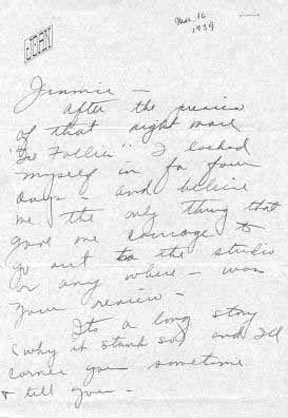 JOAN
Mar. 16
1939
Jimmie —
After the preview
of that night mare
"Ice Follies" I locked
myself in for four
days — and believe
me the only thing that
gave me courage to
go out to the studio
or any where — was
your review —
Its a long story
(why it stunk so) and I'll
corner you sometime
& tell you —